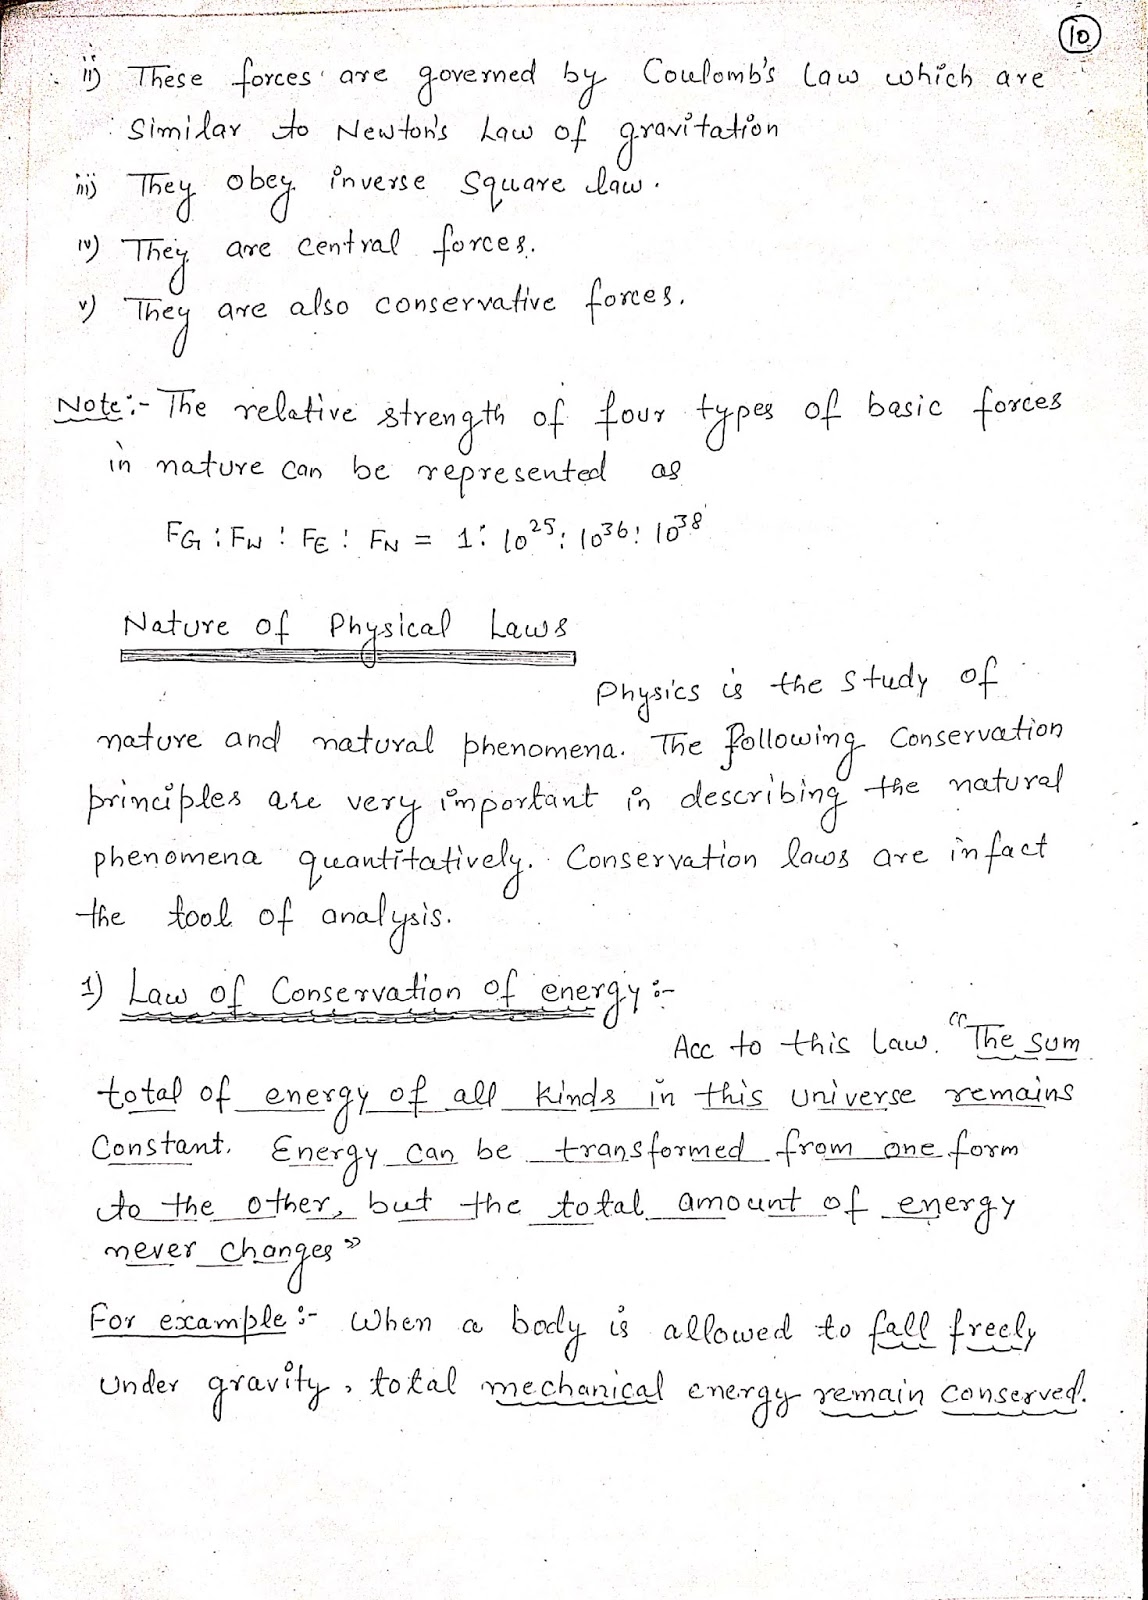 10
ii) These forces are governed by Coulomb's Law which are
similar to Newton's Law of gravitation
iii) They obey inverse square law.
iv) They are central forces.
v) They are also conservative forces.
Note:- The relative strength of four types of basic forces
in nature can be represented as
FG : FW : FE : FN = 1 : 10²⁵ : 10³⁶ : 10³⁸
Nature of Physical Laws
Physics is the study of
nature and natural phenomena. The following Conservation
principles are very important in describing the natural
phenomena quantitatively. Conservation laws are infact
the tool of analysis.
1) Law of Conservation of energy :-
Acc to this Law. "The sum
total of energy of all kinds in this universe remains
Constant. Energy can be transformed from one form
to the other, but the total amount of energy
never changes"
For example :- When a body is allowed to fall freely
under gravity, total mechanical energy remain conserved.